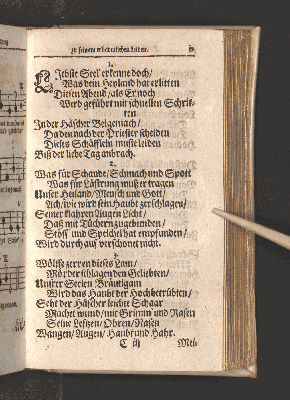 zu seinem erbermlichen Leiden.
1.
Liebste Seel' erkenne doch/
Was dein Heyland hat erlitten
Diesen Abend/ als Er noch
Werd geführt mit schnellen Schrit-
ten
In der Häscher
Da den nach der Priester scheiden
Dieses Schäflein muste leiden
Biß der liebe Tag anbrach.
2.
Was für Schande/ Schmach und Spott
Was für Lästrung must er tragen
Unser Heiland/ Mensch und Gott/
Ach/ wie wird sein Haubt zerschlagen/
Seiner klahren Augen Licht/
Daß mit Tüchern zugebunden/
Stöß' und Speichel hat empfunden/
Wird durch auß verschonet nicht.
3.
Wölffe zerren dieses Lam/
Mörder schlagen den Geliebten/
Unsrer Seelen Bräutigam
Wird das Haubt der Hochbetrübten/
Seht der Häscher leichte Schaar
Machet wund/ mit Grimm und Rasen
Seine Lefzen/ Ohren/ Nasen
Wangen/ Augen/ Haubt und Hahr.
C iij